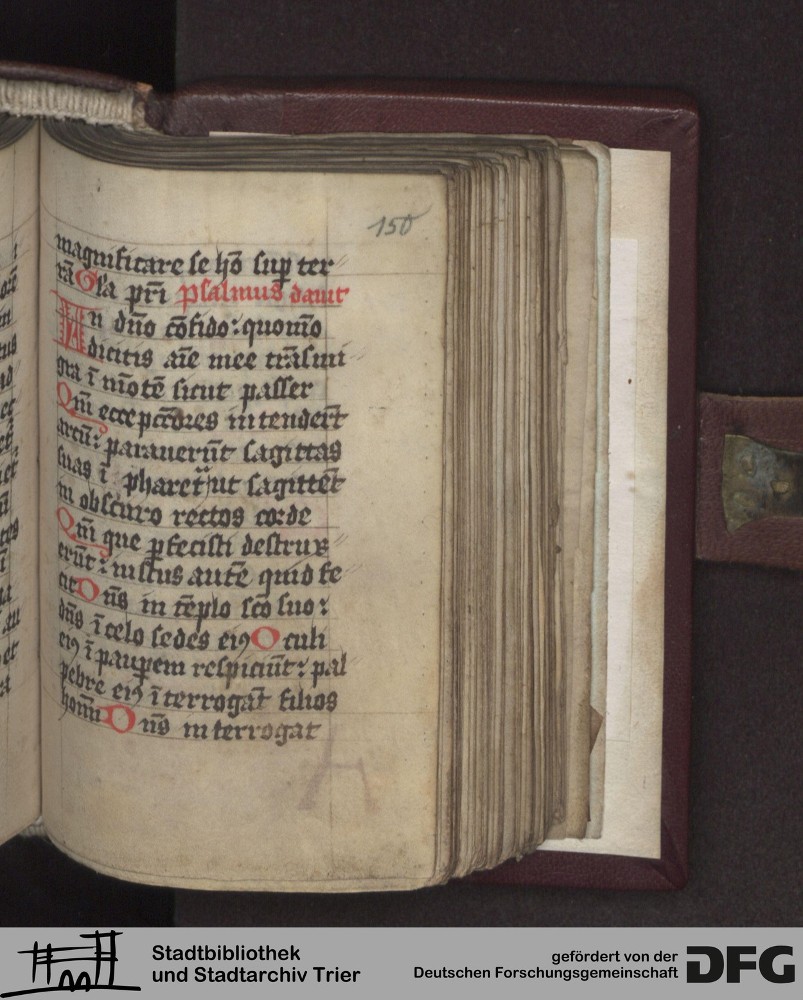 150
magnificare se hō sup ter
rā Gľa pri psalmus dauit
In dn̄o cōfido: quomō
dicitis aīe mee trāsmi
gra ī mōtē sicut passer
Qm̄ ecce pctōres intenderūt
arcū: parauerūt sagittas
suas ī pharetra ut sagittēt
in obscuro rectos corde
Qm̄ que pfecisti destrux
erūt: iustus autē quid fe
cit Dn̄s in tēplo scō suo:
dn̄s ī celo sedes eiꝯ Oculi
eiꝯ ī paupem respiciūt: pal
pebre eiꝯ īterrogāt filios
homīū Dn̄s interrogat
Stadtbibliothek
und Stadtarchiv Trier
gefördert von der
Deutschen Forschungsgemeinschaft
DFG